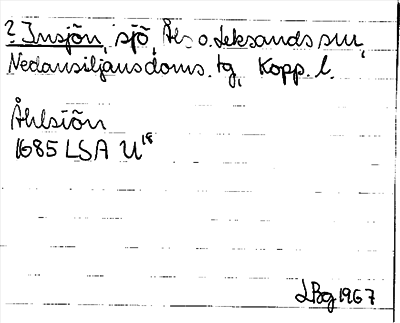 ? Insjön, sjö, Åls o. Leksands snr,
Nedansiljansdoms. tg, Kopp. l.
Åhlsiön
1685 LSA U¹⁸
LBg 1967